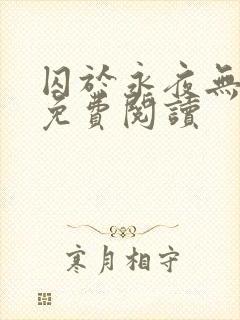 囚於永夜無
免費閱讀
寒月相守